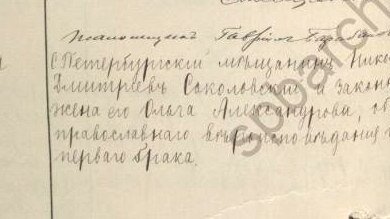 Гавріилъ
С Петербургскій мѣщанинъ Нико
Дмитріевъ Соколовскій и закон
жена его Ольга Александрова, о
православнаго вѣроисповѣданія
перваго брака.
spbarch